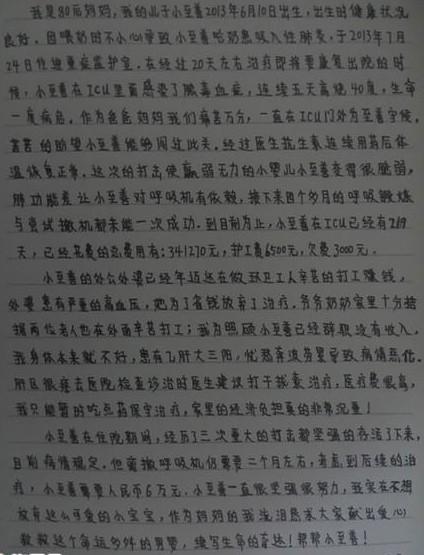 我是80后妈妈，我的儿子小至善2013年6月10日出生，出生时健康状况
良好。因喂奶时不小心导致小至善呛奶患吸入性肺炎，于2013年7月
24日住进重症监护室。在经过20天左右治疗即将要康复出院的时
候，小至善在ICU里面感染了脓毒血症，连续五天高烧40度，生命
一度病危。作为爸爸妈妈我们痛苦万分，一直在ICU门外为至善守候，
苦苦的盼望小至善能够闯过此关。经过医生抗生素连续用药后体
温恢复正常。这次的打击使羸弱无力的小婴儿小至善变得很脆弱，
肺功能差让小至善对呼吸机有依赖，接下来四个多月的呼吸锻炼
与尝试撤机都未能一次成功。到目前为止，小至善在ICU已经有
天，已经花费的总费用有：341270元，护工费6500元，欠费3000元。
小至善的外公外婆已经年迈还在做环卫工人辛苦的打工赚钱，
外婆患有严重的高血压，她为了省钱放弃了治疗。爷爷奶奶家里十分拮
据两位老人也在外面辛苦打工；我为照顾小至善已经辞职没有收入，
我身体本来就不好，患有乙肝大三阳，忧愁奔波劳累导致病情恶化。
前段很疼去医院检查诊治时医生建议打干扰素治疗，医疗费很高，
我只能暂时吃点药保守治疗，家里的经济负担真的非常沉重！
小至善在住院期间，经历了三次重大的打击都坚强的存活了下来，
目前病情稳定。但要撤呼吸机仍需要二个月左右，考虑到后续的治
疗，小至善需要人民币6万元。小至善一直很坚强很努力，我实在不想
放弃这么可爱的小宝宝，作为妈妈的我流泪恳求大家献出爱心
救救这个命运多舛的男婴，续写生命的奇迹！帮帮小至善！